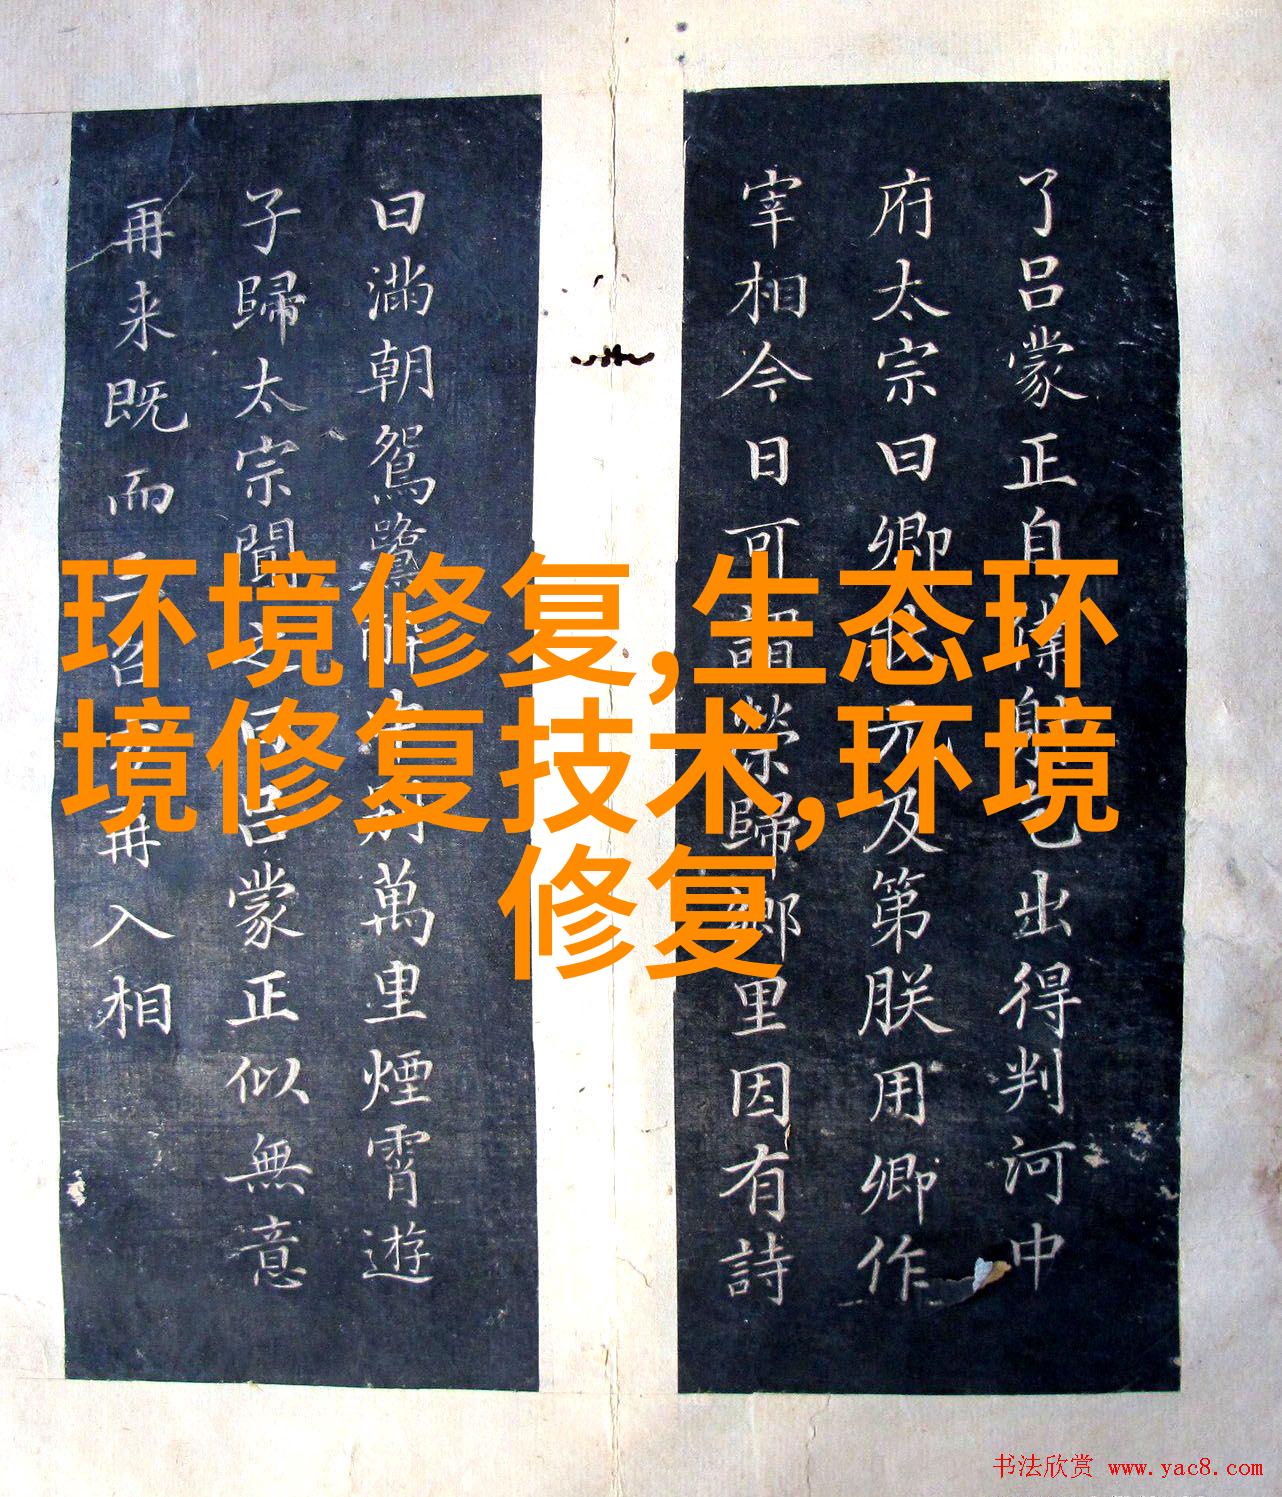 了吕蒙正自
出得判河中
府太宗曰卿
及第朕用卿作
宰相今日可謂榮歸鄉里因有詩
曰滿朝鴛鷺
萬里煙霄遊
子歸太宗聞之
吕蒙正似無意
再来既而
再入相
环境修复,生态环
境修复技术,环境
修复
书法欣赏 www.yac8.com